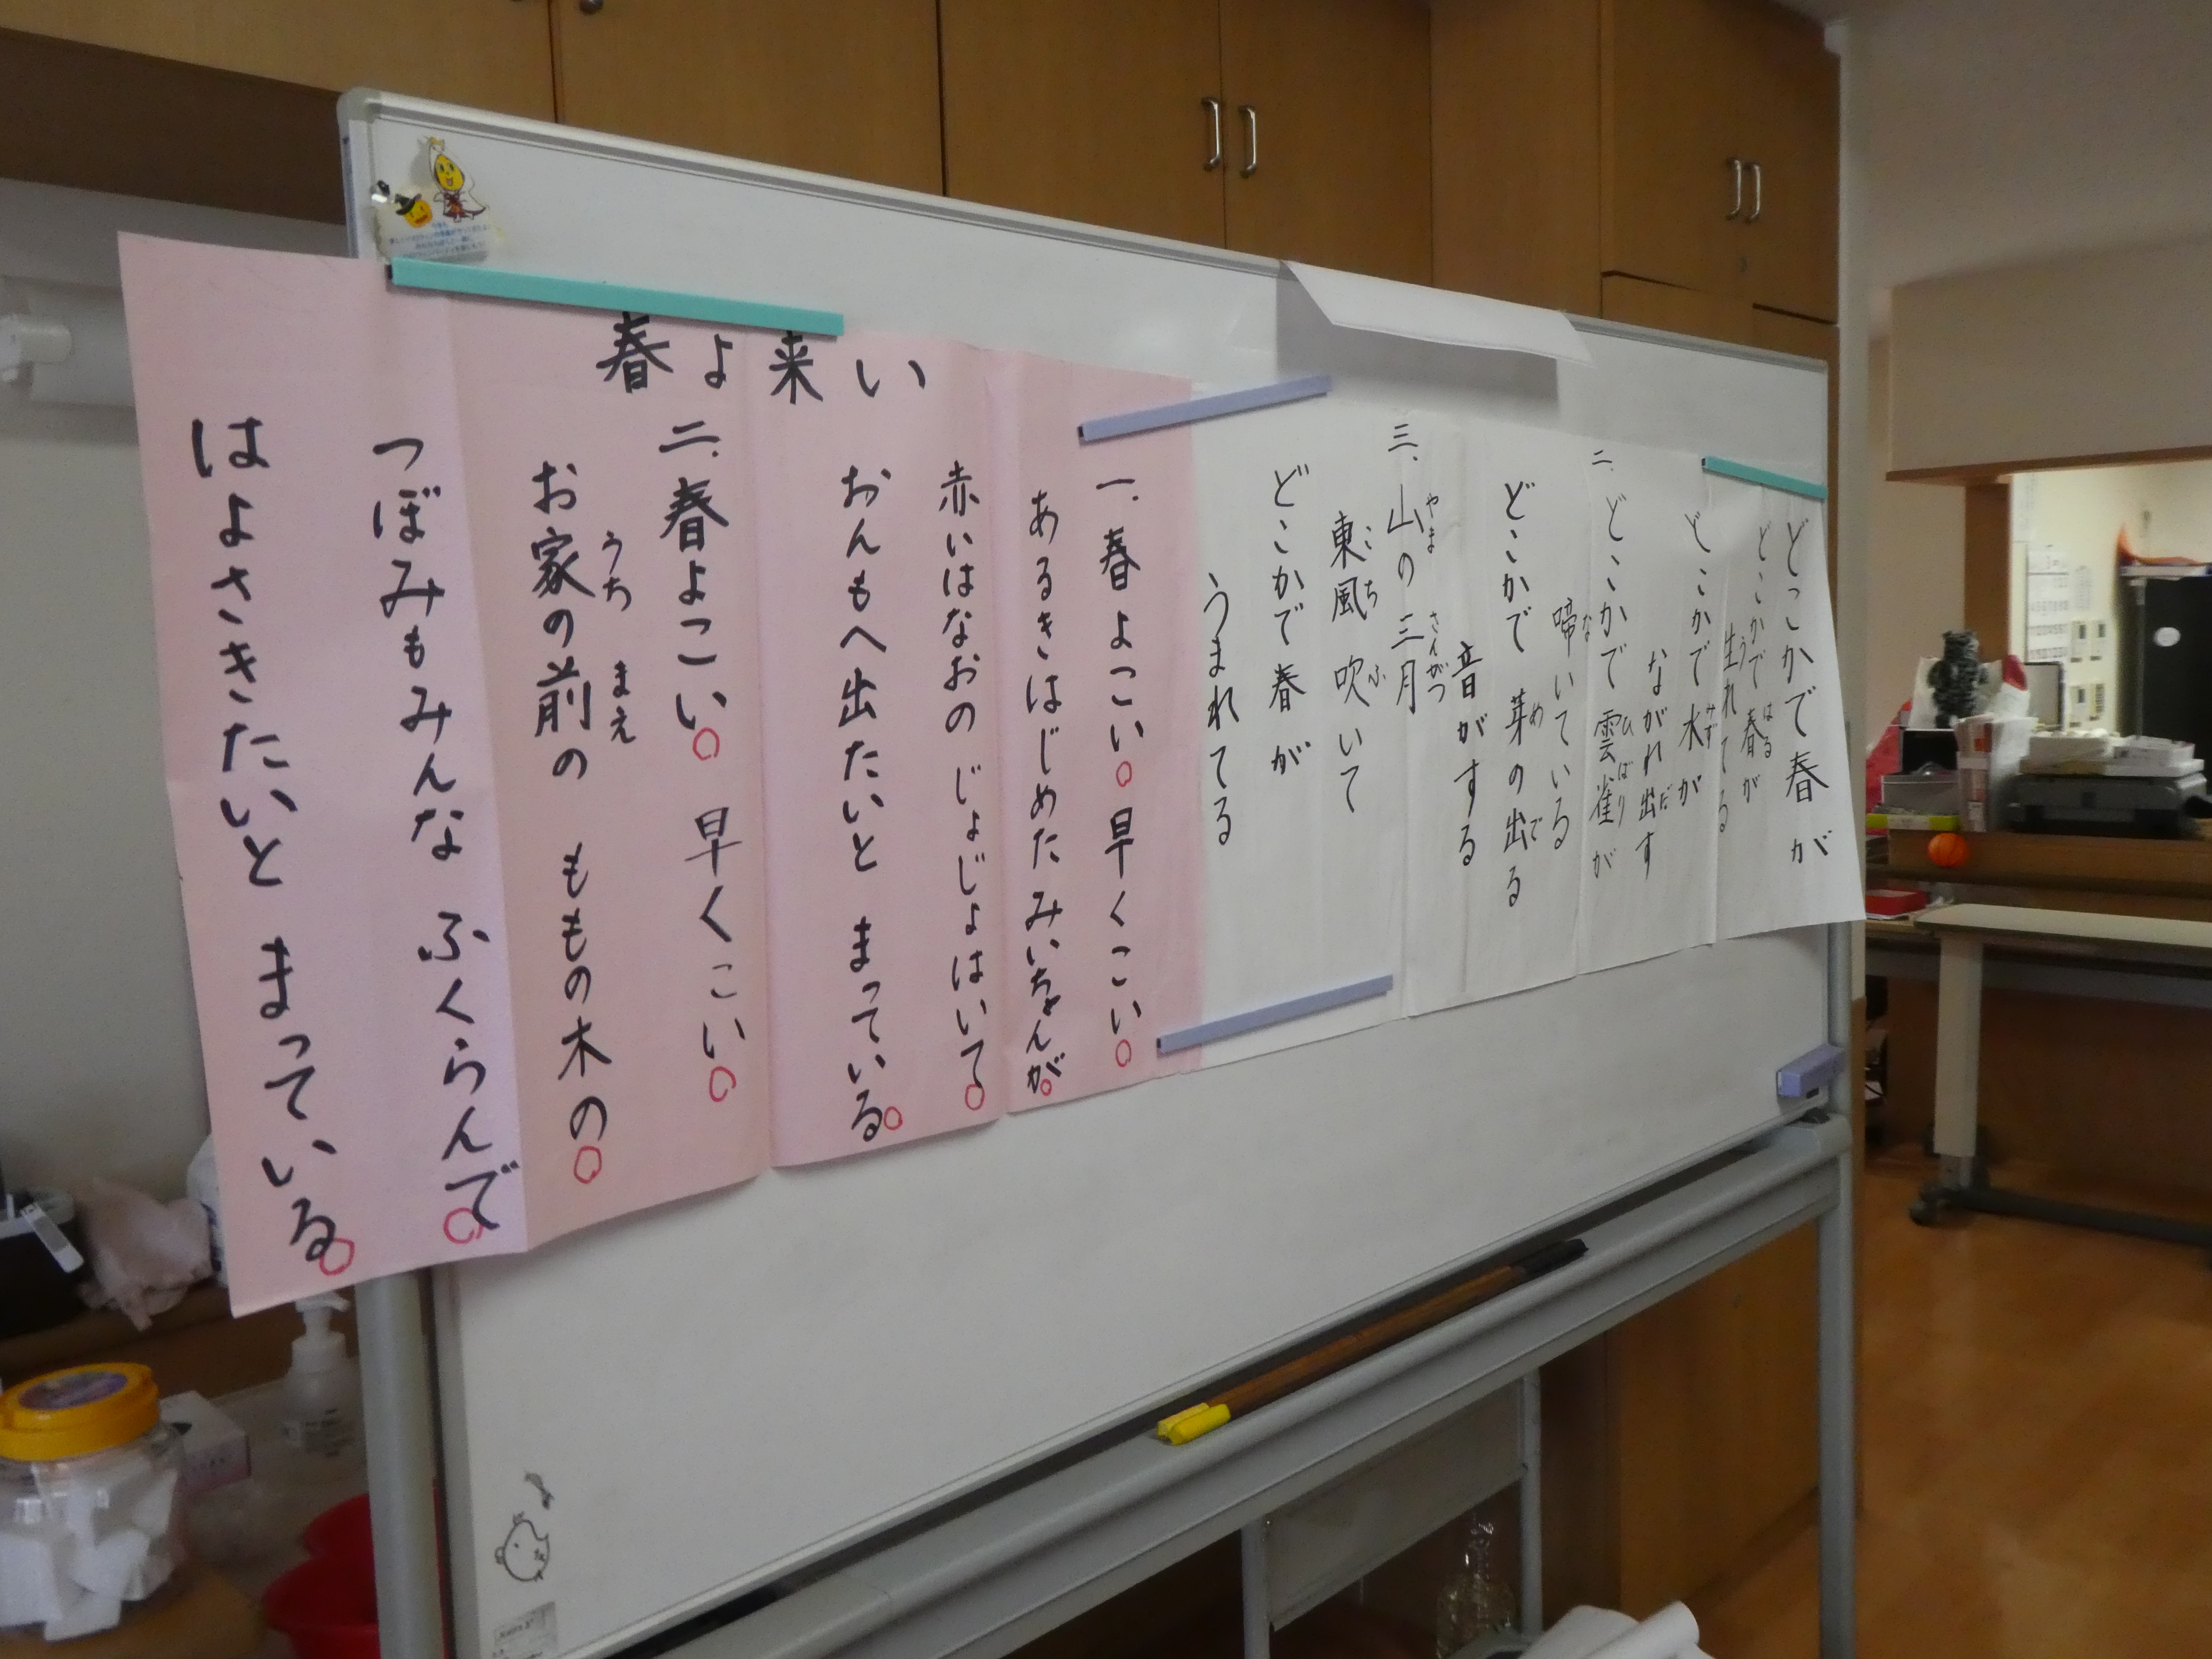 どこかで春が
どこかで春が
はる
生れてる
う
どこかで水が
みず
ながれ出す
だ
二、どこかで雲雀が
ひばり
啼いている
な
どこかで芽の出る
め で
音がする
三、山の三月
やま さんがつ
東風吹いて
こち ふ
どこかで春が
うまれてる
春よ来い
一.春よこい○早くこい○
あるきはじめたみいちゃんが○
赤いはなおの じょじょはいて○
おんもへ出たいと まっている○
二.春よこい○ 早くこい○
お家の前の ももの木の○
うち まえ
つぼみもみんな ふくらんで○
はよさきたいと まっている○